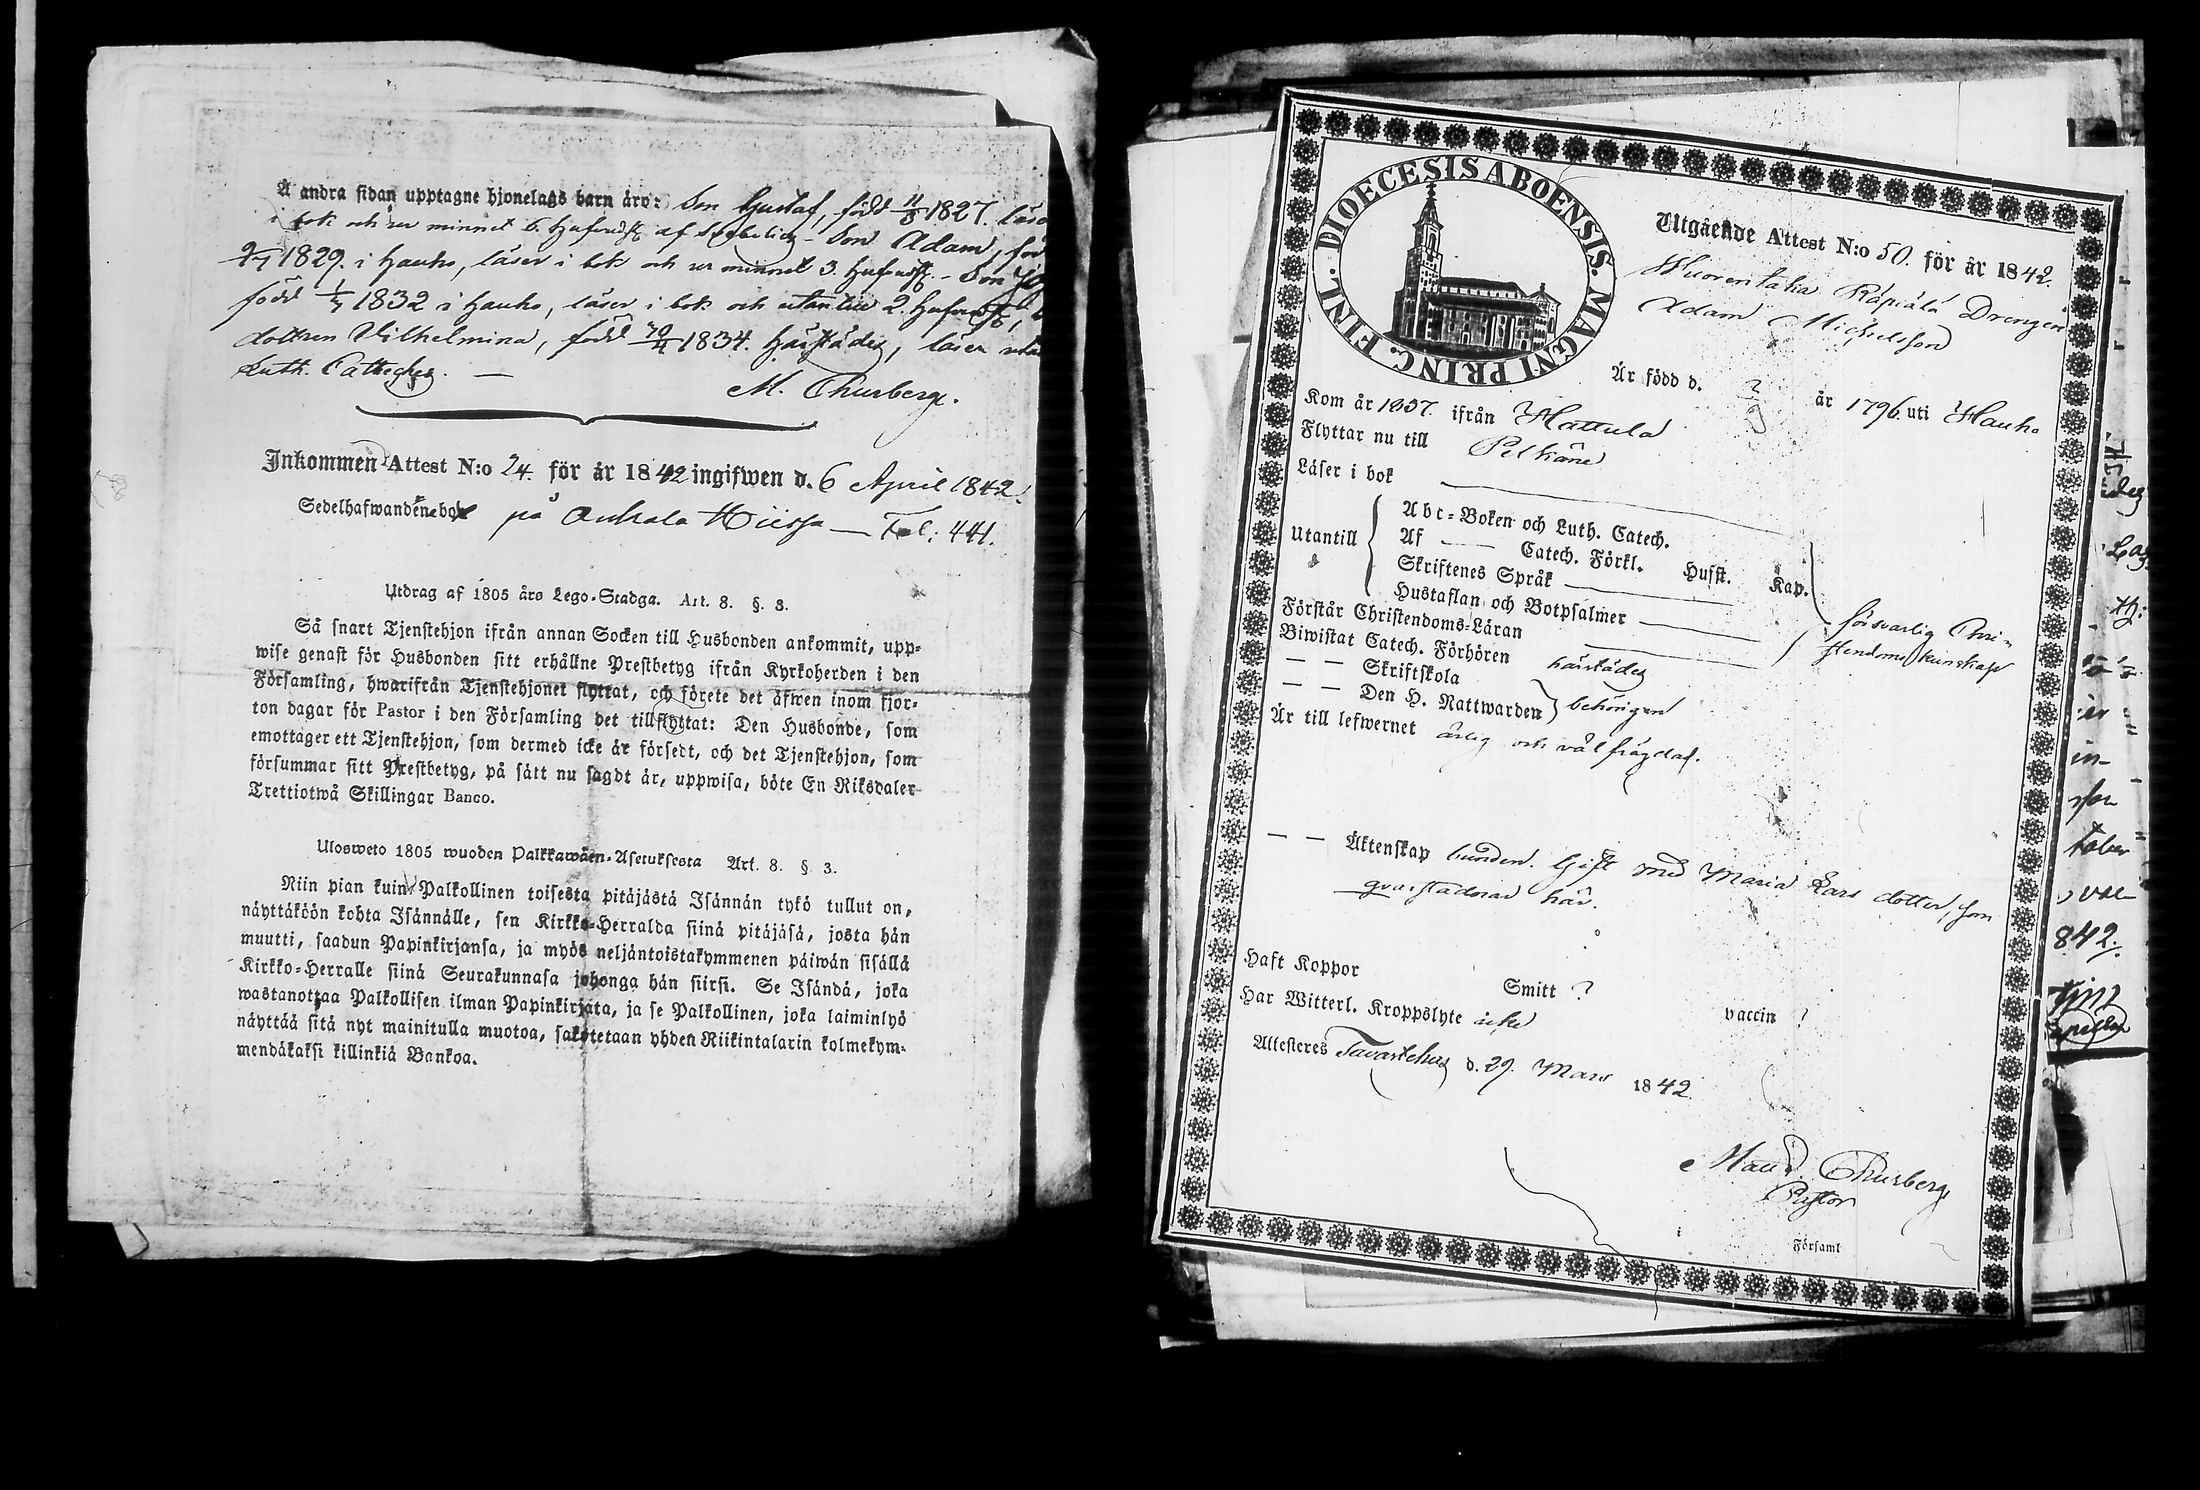 Å andra sidan upptagne hjonelags barn äro: Son Gustaf, född 11/8 1827. läser
i bok och ur minnet 6. Hufvudst. af - Son Adam, född
9/7 1829. i Hauho, läser i bok och ur minnet 3. Hufvudst. - Son
född 1/4 1832 i Hauho, läser i bok och utantill 2. Hufvudst,
dottren Vilhelmina, född 1834. härstädes, läser
Luth. Catheches. —
M. Thurberg.
Inkommen Attest N:o 24. för år 1842 ingifwen d. 6 April 1842.
Sedelhafwanden på Hiissa — Fol: 441.
Utdrag af 1805 års Lego-Stadga. Art. 8. §. 3.
Så snart Tjenstehjon ifrån annan Socken till Husbonden ankommit, upp-
wise genast för Husbonden sitt erhållne Prestbetyg ifrån Kyrkoherden i den
Församling, hwarifrån Tjenstehjonet flyttat, och förete det äfwen inom fjor-
ton dagar för Pastor i den Församling det tillflyttat: Den Husbonde, som
emottager ett Tjenstehjon, som dermed icke är försedt, och det Tjenstehjon, som
försummar sitt Prestbetyg, på sätt nu sagdt är, uppwisa, böte En Riksdaler
Trettiotwå Skillingar Banco.
Ulosweto 1805 wuoden Palkkawäen-Asetuksesta Art. 8. § 3.
Niin pian kuin Palkollinen toisesta pitäjästä Isännän tykö tullut on,
näyttäköön kohta Isännälle, sen Kirkko-Herralda siinä pitäjäsä, josta hän
muutti, saadun Papinkirjansa, ja myös neljäntoistakymmenen päiwän sisällä
Kirkko-Herralle siinä Seurakunnasa johonga hän siirsi. Se Isändä, joka
wastanottaa Palkollisen ilman Papinkirjata, ja se Palkollinen, joka laiminlyö
näyttää sitä nyt mainitulla muotoa, sakotetaan yhden Riikintalarin kolmekym-
mendäkaksi killinkiä Bankoa.
DIOECESIS ABOENSIS. MAGNI PRINC. FINL.
Utgående Attest N:o 50. för år 1842.
Wuorentaka Räpiälä Drengen
Adam Michelsson
Är född d. ? år 1796. uti Hauho
Kom år 1837. ifrån Hattula
Flyttar nu till Pelkäne
Läser i bok
Utantill
Abc-Boken och Luth. Catech.
Af — Catech. Förkl. Hufst. Kap.
Skriftenes Språk
Hustaflan och Botpsalmer
Förstår Christendoms-Läran
försvarlig Chri-
stendoms kunskap
Biwistat Catech. Förhören härstädes
— — Skriftskola
— — Den H. Nattwarden behörigen
Är till lefwernet ärlig och välfrägdad.
— — Äktenskap bunden. Gift med Maria Lars dotter, som
qvarstadnar här.
Haft Koppor Smitt ? vaccin ?
Har Witterl. Kroppslyte icke
Attesteres Tavastehus d. 29. Mars 1842
Thurberg
Pastor
i Församl